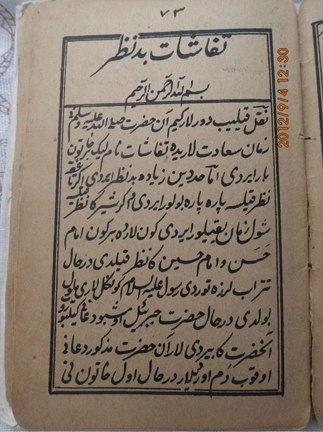 ۷۳
تفاشات بدنظر
بسم الله الرحمن الرحیم
نقل قیلیب دورلارکیم آن حضرت صلی الله علیه وسلم نی
زمان سعادت لاریده تفاشات نام لیک خاتون
بارایردی آندین زیاده بدنظر ایردی
نظر قیلسه پاره پاره بولور ایردی اگر شیر کا نظر
بقیلور ایردی کون لارده بر کون امام
حسن و امام حسین کا نظر قیلدی درحال
لرزه توردی رسول علیه السلام کونکل لاری
بولدی درحال حضرت جبرئیل اوشبو دعا
آنحضرت کا بیردی لار آن حضرت مذکور دعانی
اوقوب دم اوردیلار درحال اول خاتون نی
2012/9/4 12:30